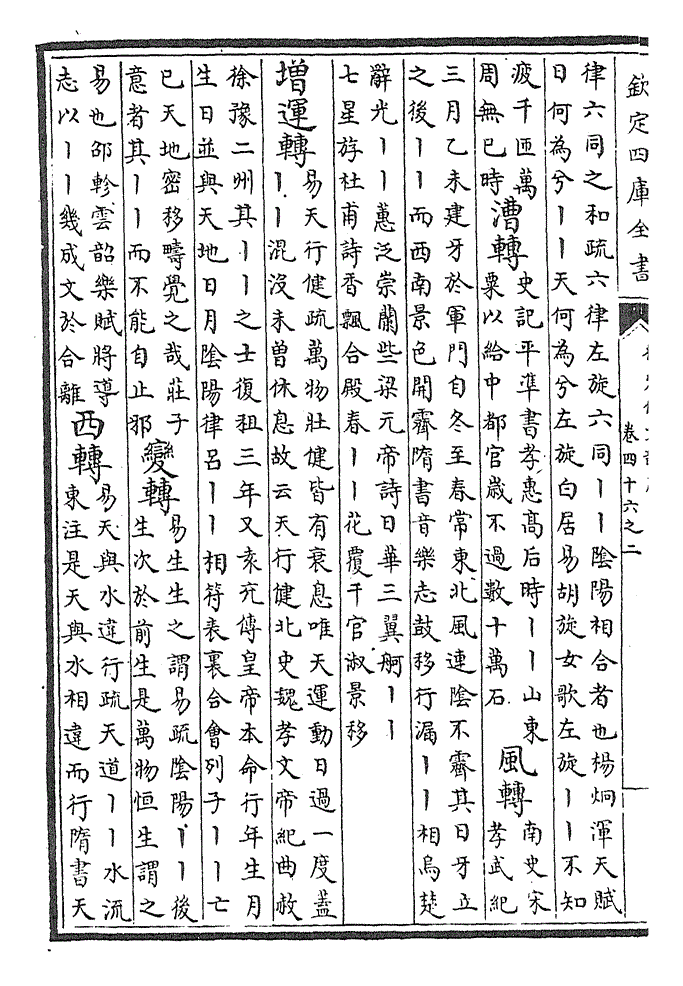 欽定四庫全書
卷四十六之二
律六同之和疏六律左旋六同丨丨陰陽相合者也楊炯渾天賦
日何為兮丨丨天何為兮左旋白居易胡旋女歌左旋丨丨不知
疲千匝萬
周無已時
漕轉
史記平準書孝惠高后時丨丨山東
粟以給中都官歳不過數十萬石
風轉
南史宋
孝武紀
三月乙未建牙於軍門自冬至春常東北風連陰不霽其日牙立
之後丨丨而西南景色開霽隋書音樂志鼓移行漏丨丨相烏楚
辭光丨丨蕙泛崇蘭些梁元帝詩日華三翼舸丨丨
七星斿杜甫詩香飄合殿春丨丨花覆千官淑景移
増運轉
易天行健疏萬物壯健皆有衰息唯天運動日過一度蓋
丨丨混沒未曽休息故云天行健北史魏孝文帝紀曲赦
徐豫二州其丨丨之士復租三年又袤充傳皇帝本命行年生月
生日並與天地日月陰陽律吕丨丨相符表裏合會列子丨丨亡
已天地密移疇覺之哉莊子
意者其丨丨而不能自止邪
變轉
易生生之謂易疏陰陽丨丨後
生次於前生是萬物恒生謂之
易也邵軫雲韶樂賦將導
志以丨丨幾成文於合離
西轉
易天與水違行疏天道丨丨水流
東注是天與水相違而行隋書天